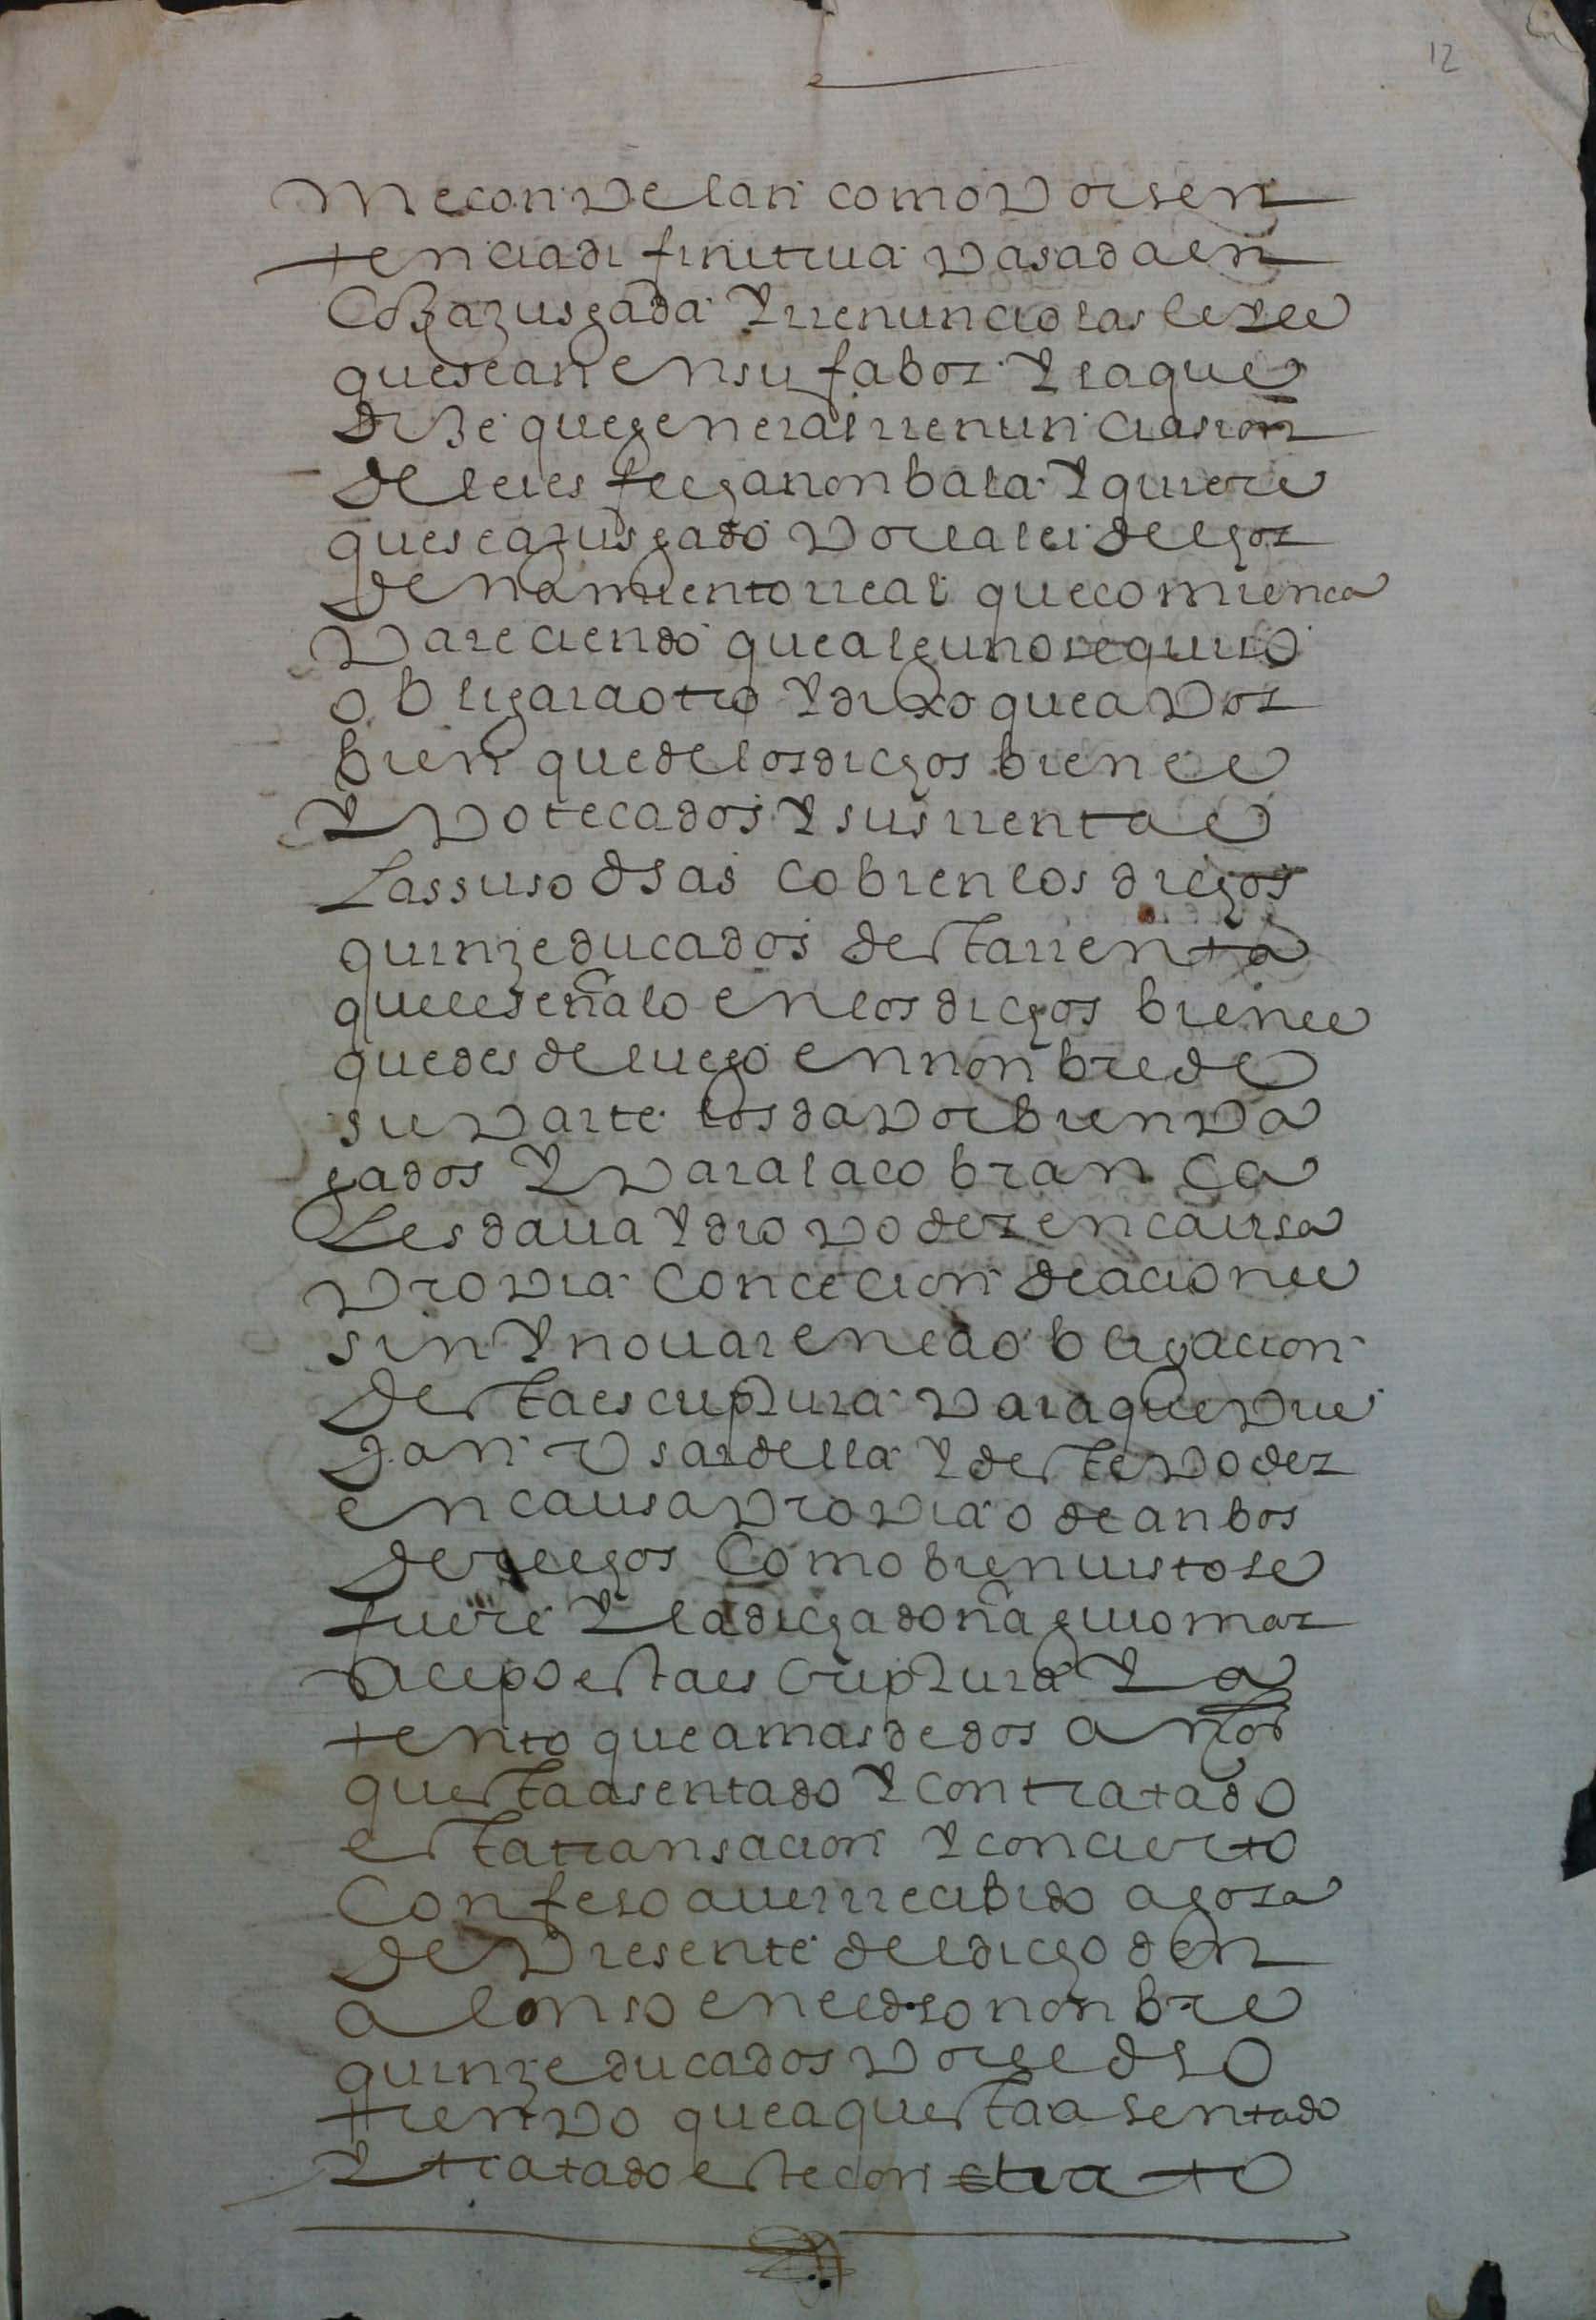 12
me conpelan como por sen
tencia difinitiua pasada en
cosa juzgada y rrenuncio las leyes
que sean en su fabor y la que
dize que general rrenunciasion
de leies fecha non bala y quiere
que sea juzgado por la lei del hor
denamiento rreal que comiença
pareciendo que alguno se quiso
obligar a otro y dixo que a por
bien que de los dichos bienes
ypotecados y sus rrentas
las suso dhas cobren los dichos
quinze ducados desta rrenta
que le señalo en los dichos bienes
que desde luego en nonbre de
su parte los da por bien pa
gados y para la cobrança
les daua y dio poder en causa
propia concecion de aciones
sin ynouar en la obligacion
desta escriptura para que pue
dan vsar della y deste poder
en causa propia o de anbos
derechos como bien uisto le
fuere y la dicha doña guiomar
acepto esta escriptura y a
tento que a mas de dos años
questa asentado y contratado
esta transacion y concierto
confeso auer rrecibido agora
de presente del dicho don
alonso en el dho nonbre
quinze ducados por el dho
tienpo que a questa asentado
y tratado este contrato